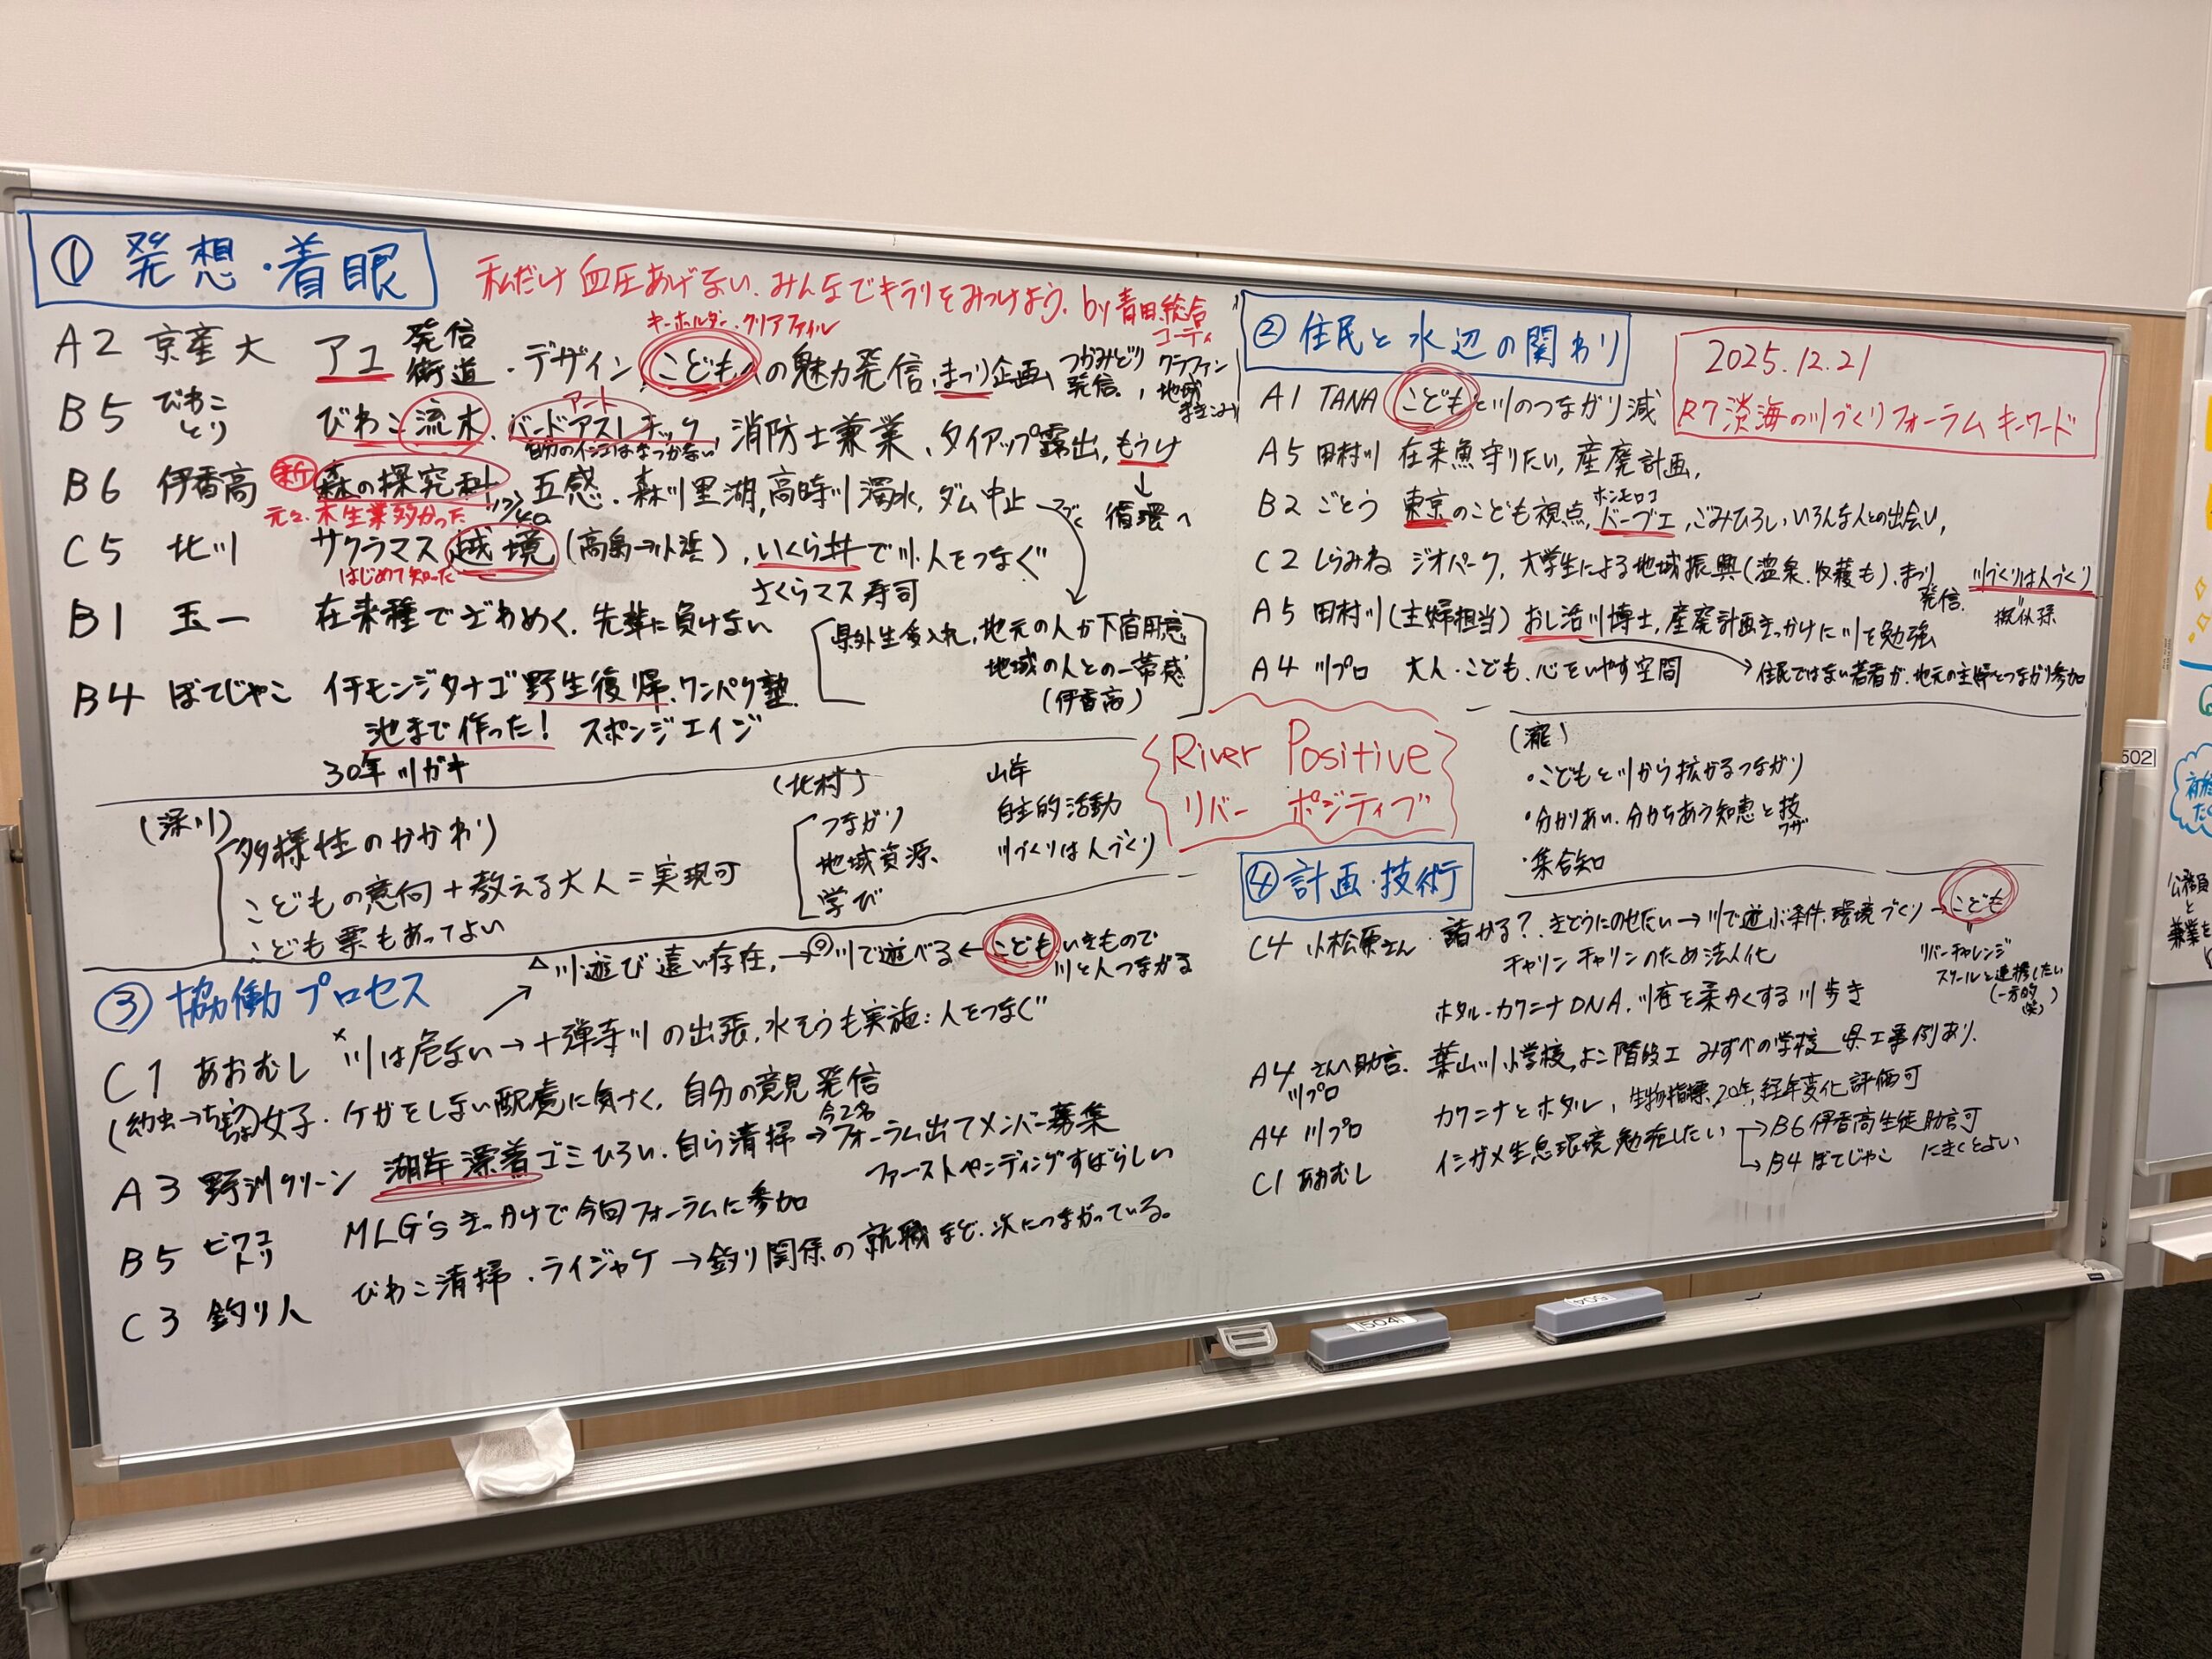 ① 発想・着眼
私だけ血圧あげない、みんなでキラリをみつけよう。by 青田総合コーディ
キーホルダー・クリアファイル
A2 京産大 アユ 発信 街道・デザイン、こどもへの魅力発信、まつり企画、つかみどり発信、クラファン 地域まきこみ
アート
B5 びわことり びわこ流木、バードアスレチック、消防士兼業、タイアップ露出、もうけ
↓
循環へ
B6 伊香高 新 森の探究科 五感・森川里湖、高時川濁水、ダム中止
元々、木生業多かった
C5 北川 サクラマス越境(高島→長浜)、いくら丼で川・人をつなぐ
はじめて知った
さくらマス寿司
B1 玉一 在来種でざわめく、先輩に負けない
県外生受入れ、地元の人が下宿用意
地域の人との一帯感
(伊香高)
B4 ぼてじゃこ イチモンジタナゴ野生復帰、ワンパク塾
池まで作った! スポンジエイジ
30年川ガキ
(深川)
多様性のかかわり
こどもの意向+教える大人=実現可
こども票もあってよい
(北村)
つながり
地域資源、
学び
自主的活動
川づくりは人づくり
River Positive
リバー ポジティブ
② 住民と水辺の関わり
2025.12.21
R7淡海の川づくりフォーラム キーワード
A1 TANA こどもと川のつながり減
A5 田村川 在来魚守りたい、産廃計画、
ホンモロコ
B2 ごとう 東京のこども視点、バーブエ、ごみひろい、いろんな人との出会い、
C2 しらみね ジオパーク、大学生による地域振興(温泉、収穫も)、まつり発信、川づくりは人づくり
擬似孫
A5 田村川(主婦担当) おし活川博士、産廃計画きっかけに川を勉強
→住民ではない若者が、地元の主婦とつながり参加
A4 川プロ 大人・こども、心をいやす空間
(瀧)
・こどもと川から拡がるつながり
・分かりあい、分かちあう知恵と技
ワザ
・集合知
③ 協働プロセス
△川遊び遠い存在、→◎川で遊べる←こども いきもので
川と人つながる
C1 あおむし ×川は危ない→十禅寺川の出張、水そうも実施:人をつなぐ
女子・ケガをしない配慮に気付く、自分の意見発信
今2名
A3 野洲クリーン 湖岸漂着ゴミひろい、自ら清掃→フォーラム出てメンバー募集
ファーストペンディングすばらしい
B5 ビワコトリ MLG'sきっかけで今回フォーラムに参加
C3 釣り人 びわこ清掃・ライジャケ→釣り関係の就職など、次につながっている。
④ 計画・技術
C4 小松原さん・諸かる?、きどうにのせたい→川で遊ぶ条件、環境づくり→こども
チャリンチャリンのため法人化
リバーチャレンジ
スクールと連携したい
(一方的)
(笑)
ホタル-カワニナDNA、川在を柔かくする川歩き
A4 川プロ さんへ助言、葉山川小学校よこ階段工 みずべの学校 県工事例あり、
A4 川プロ カワニナとホタル、生物指標、20年、経年変化評価可
C1 あおむし イシガメ生息環境勉強したい→B6 伊香高生徒助言可
→B4 ぼてじゃこ にきくとよい
502
504
504
公務員
と
兼業を